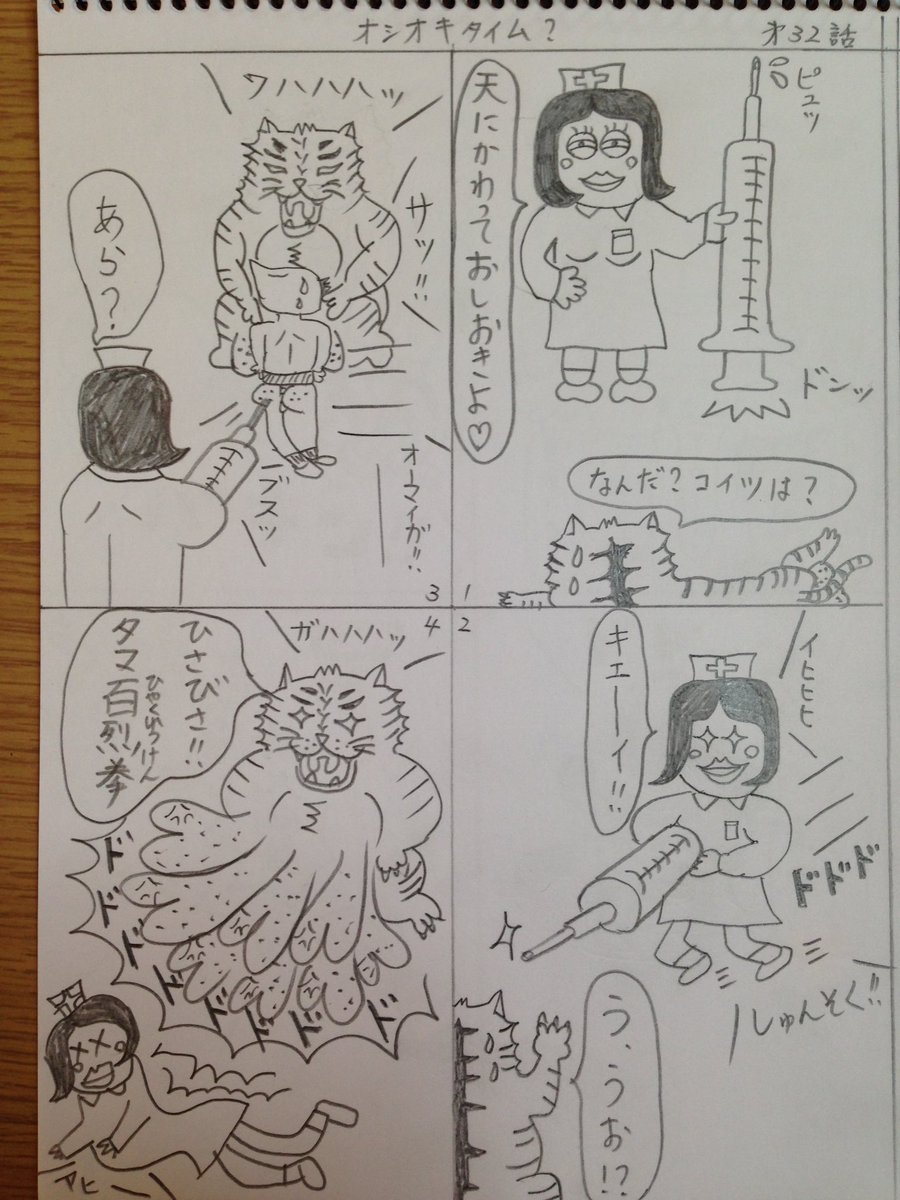 オシオキタイム?
第32話
ピュッ
天にかわっておしおきよ♡
ドンッ
なんだ?コイツは?
1
2
イヒヒヒ
キエーーイ!!
ドドド
しゅんそく!!
う、うお!?
ワハハハッ
サッ!!
あら?
ブスッ
オーマイガ!!
3
4
ガハハハッ
ひさびさ!!
タマ百烈拳
ひゃくれつけん
ドドドドドドド
アヒ